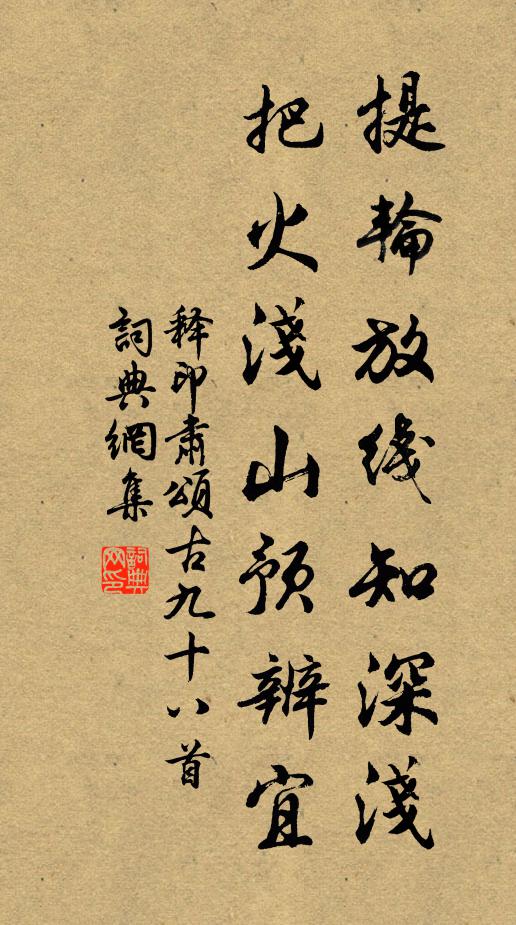 提輪放线知深淺
把火淺山预辨宜
释印肅頌古九十八首
詞典網集
詞典网印